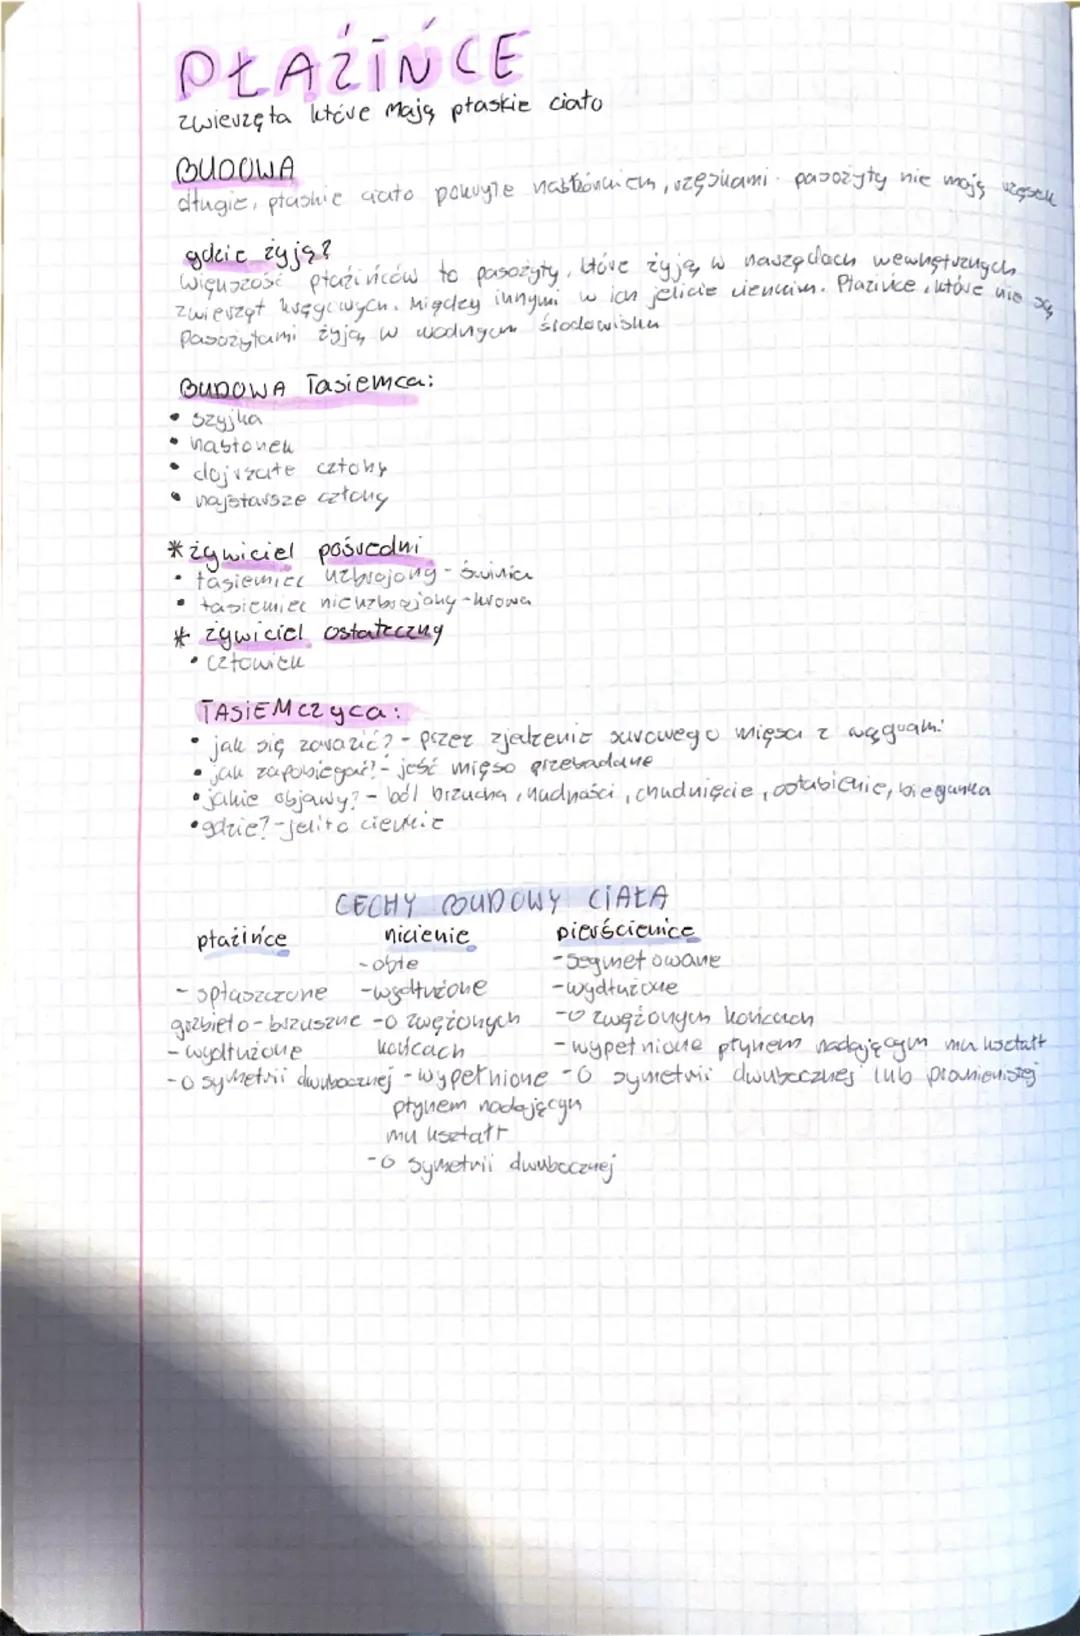 PŁAZIŃCE
zwierzęta które mają płaskie ciało
BUDOWA
długie, płaskie ciało pokryte nabłonkiem, rzęskami. pasożyty nie mają rzęsek
gdzie żyją?
większość płazińców to pasożyty, które żyją w narządach wewnętrznych
zwierząt kręgowych. Między innymi w ich jelicie cienkim. Płazińce, które nie są
pasożytami żyją w wodnym środowisku
BUDOWA Tasiemca:
• szyjka
• nabłonek
• dojrzałe człony
• najstarsze człony
* żywiciel pośredni
• tasiemiec uzbrojony - świnia
• tasiemiec nieuzbrojony - krowa
* żywiciel ostateczny
• człowiek
TASIEMczyca:
• jak się zarazić? - przez zjedzenie surowego mięsa z wągrami
• jak zapobiegać? - jeść mięso przebadane
• jakie objawy? - ból brzucha, nudności, chudnięcie, osłabienie, biegunka
• gdzie? - jelito cienkie
CECHY BUDOWY CIAŁA
płazińce nicienie pierścienice
- obłe - segmetowane
- spłaszczone - wydłużone - wydłużone
grzbieto - brzusznie - o zwężonych - o zwężonych końcach
- wydłużone końcach - wypełnione płynem nadającym mu kształt
- o symetrii dwubocznej - wypełnione - o symetrii dwubocznej lub promienistej
płynem nadającym
mu kształt
- o symetrii dwubocznej